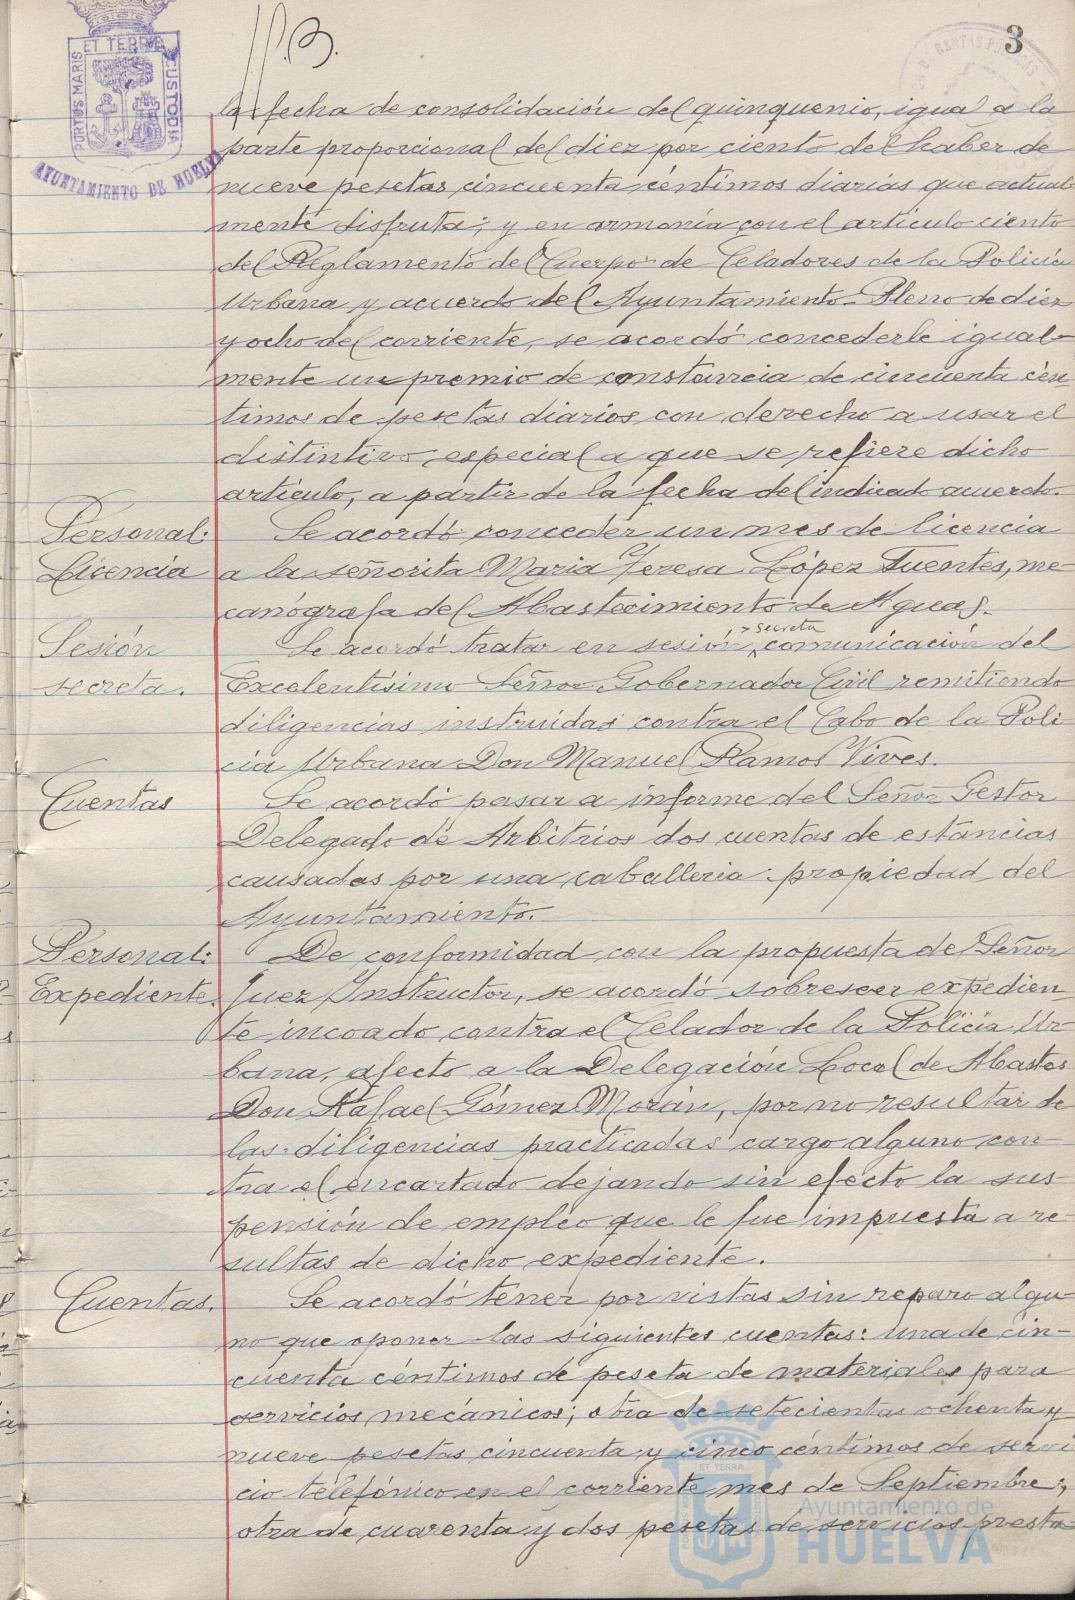 3
PORTUS MARIS ET TERRÆ CUSTODIA
AYUNTAMIENTO DE HUELVA
la fecha de consolidación del quinquenio, igual a la
parte proporcional del diez por ciento del haber de
nueve pesetas cincuenta céntimos diarias que actual-
mente disfruta; y en armonía con el artículo ciento
del Reglamento del Cuerpo de Celadores de la Policía
Urbana y acuerdo del Ayuntamiento Pleno de diez
y ocho del corriente, se acordó concederle igual-
mente un premio de constancia de cincuenta cén-
timos de pesetas diarios con derecho a usar el
distintivo especial a que se refiere dicho
artículo, a partir de la fecha del indicado acuerdo.
Personal: Se acordó conceder un mes de licencia
Licencia a la señorita Maria Teresa López Fuentes, me-
canógrafa del Abastecimiento de Aguas.
secreta
Sesión Se acordó tratar en sesión comunicación del
secreta. Excelentísimo Señor Gobernador Civil remitiendo
diligencias instruídas contra el Cabo de la Poli-
cia Urbana Don Manuel Ramos Vives.
Cuentas Se acordó pasar a informe del Señor Gestor
Delegado de Arbitrios dos cuentas de estancias
causadas por una caballeria propiedad del
Ayuntamiento.
Personal: De conformidad con la propuesta del Señor
Expediente. Juez Instructor, se acordó sobreseer expedien-
te incoado contra el Celador de la Policía Ur-
bana, afecto a la Delegación Local de Abastos
Don Rafael Gómez Morán, por no resultar de
las diligencias practicadas cargo alguno con-
tra el encartado dejando sin efecto la sus-
pensión de empleo que le fue impuesta a re-
sultas de dicho expediente.
Cuentas. Se acordó tener por vistas sin reparo algu-
no que oponer las siguientes cuentas: una de cin-
cuenta céntimos de peseta de materiales para
servicios mecánicos; otra de setecientas ochenta y
nueve pesetas cincuenta y cinco céntimos de servi-
cio telefónico en el corriente mes de Septiembre;
otra de cuarenta y dos pesetas de servicios presta-
Ayuntamiento de
HUELVA